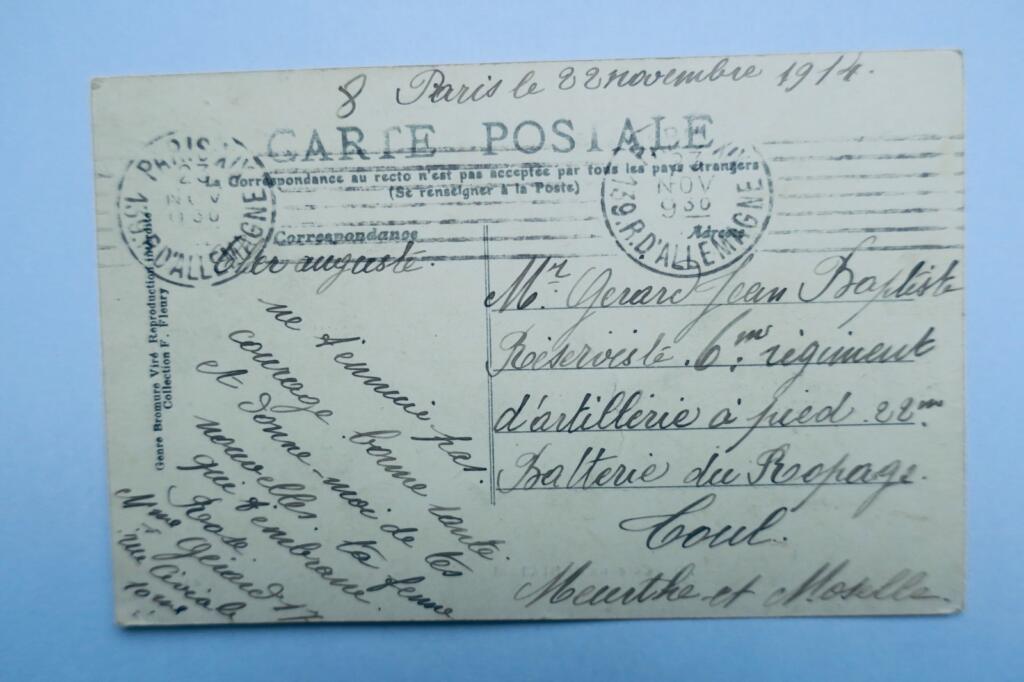 8 Paris le 22 novembre 1914.
CARTE POSTALE
La Correspondance au recto n'est pas acceptée par tous les pays étrangers
(Se renseigner à la Poste)
PARIS
NOV
930
139.R.D'ALLEMAGNE
NOV
930
139.R.D'ALLEMAGNE
Correspondance
Adresse
Cher auguste.
ne t'ennuie pas.
courage. bonne santé.
et donne-moi de tes
nouvelles. ta femme
qui t'embrasse.
Rose.
Mme Gérard 17
rue Civiale
10me
Mr. Gerard Jean Baptiste
Réserviste. 6.me régiment
d'artillerie à pied. 22.me
Batterie du Ropage.
Toul.
Meurthe et Moselle.
Genre Bromure Viré Reproduction interdite
Collection F. Fleury